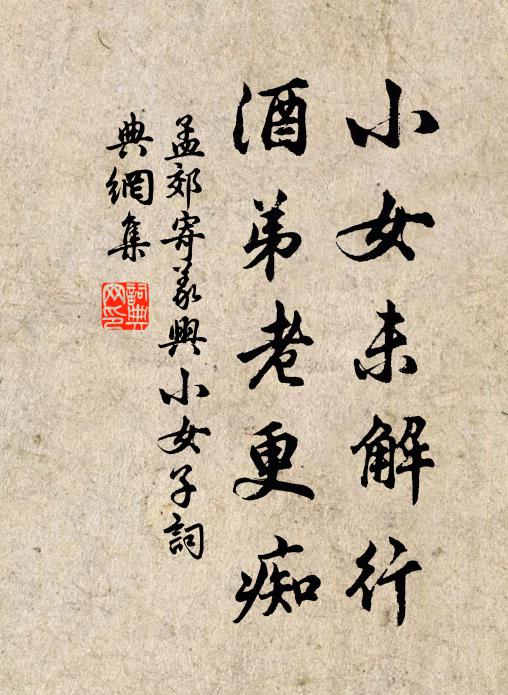 小女未解行
酒弟老更痴
孟郊寄義興小女子詞
典網集
詞典網印